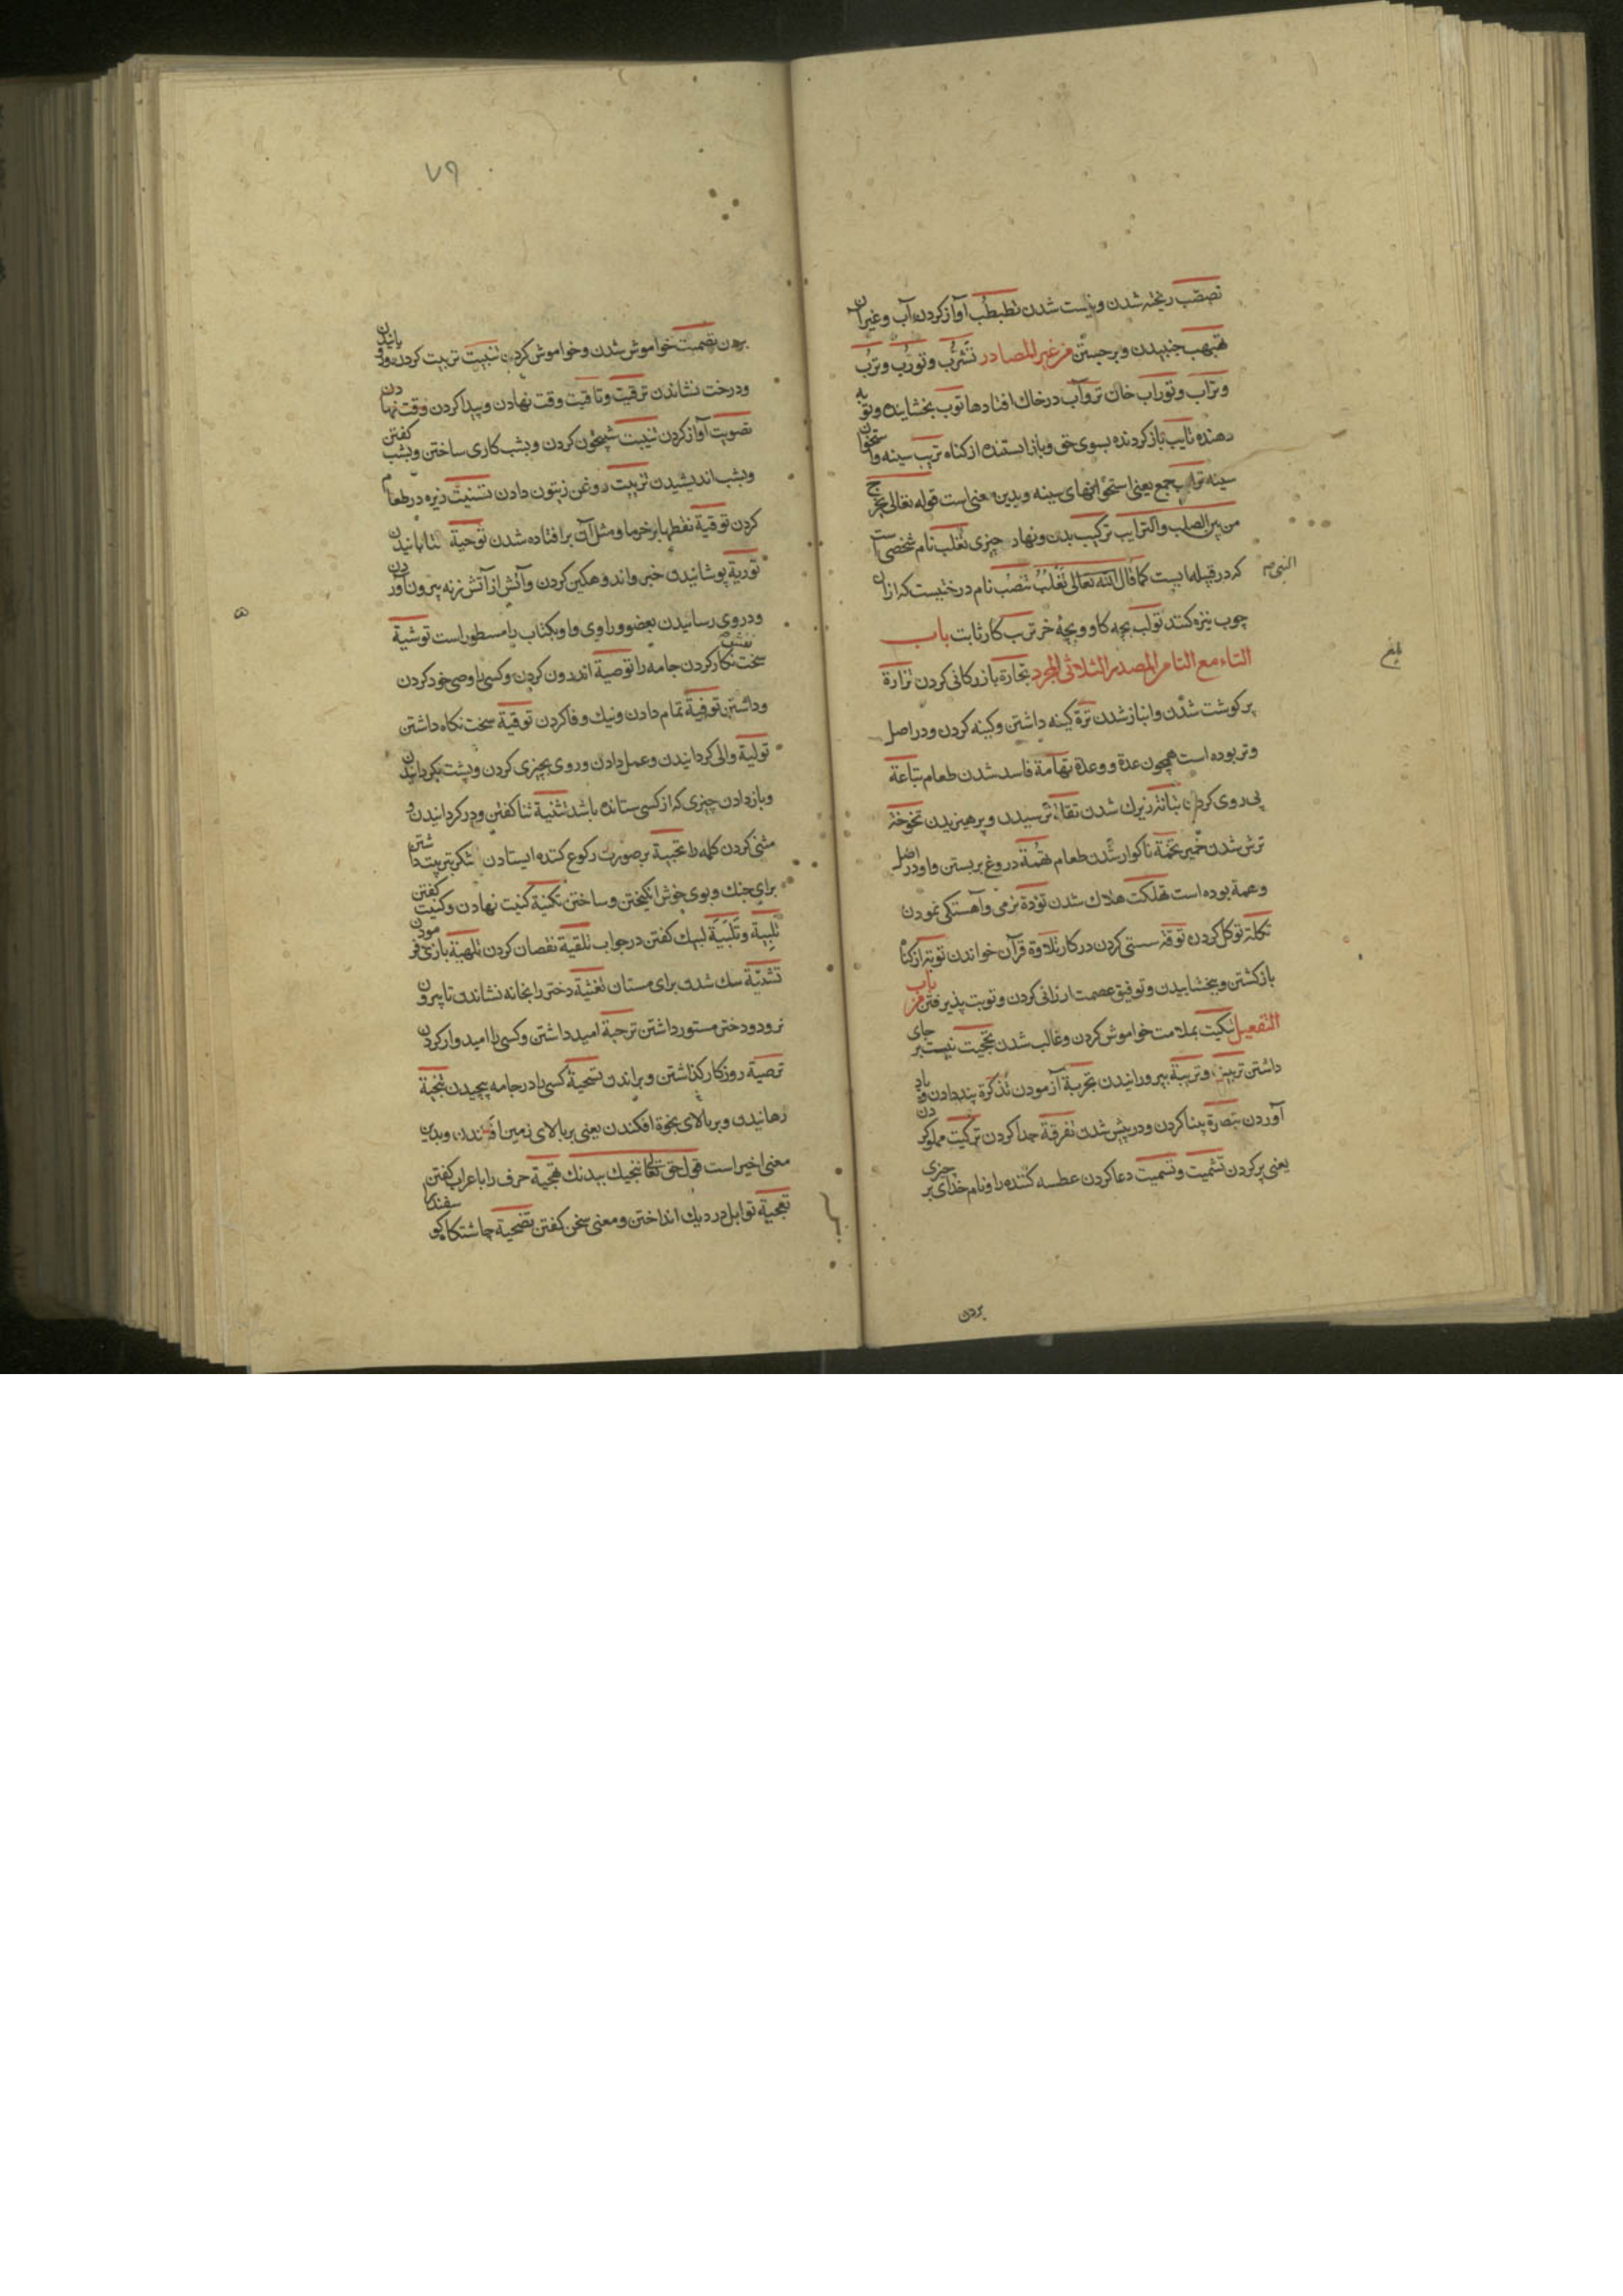 تصبّب ریخته شدن و نیست شدن تطبطب آواز کردن آب و غیر آن
تهبهب جنبیدن و برجستن من غیر المصادر تَثَرُّب و تَورَب و تُرْب
و تراب و توراب خاک توآب درخاک افتادها توّب بخشاینده و توبه
دهنده تایب باز کردنده بسوی حق و باز ایستنده از کناه تریب سینه و استخوان
سینه ترایب جمع یعنی استخوانهای سینه و بدین معنی است قوله تعالی یخرج
من بین الصلب والترایب ترکیب بدن و نهاد چیزی تغلب نام شخصی است
که در قبیله مابیست کما قال الله تعالی تَغْلُبُ تنضب نام درختیست که از آن
النبی صم
چوب نیزه کنند تولب بچه کاو و بچهٔ خر ترتب کار ثابت باب
التاء مع التا من المصدر الثلاثی المجرد تجارة بازرکانی کردن ترارة
پر کوشت شدن و انباز شدن ترة کینه داشتن و کینه کردن و در اصل
وتر بوده است همچون عدة و وعدة تهامة فاسد شدن طعام تباعة
پی روی کردن تبانة زیرک شدن تقاة ترسیدن و پرهیزیدن تخوخة
ترش شدن خمیر تخمة ناکوار شدن طعام تهمة دروغ بر بستن و او در اصل
وهمة بوده است تهلکت هلاک شدن تؤدة نرمی و آهستکی نمودن
تکلة توکل کردن توقة سستی کردن در کار تلاوة قرآن خواندن توبة از کناه
باز کشتن و بخشاییدن و توفیق عصمت ارزانی کردن و توبت پذیرفتن من باب
التفعیل تبکیت بملامت خواموش کردن و غالب شدن بحجت تبییت بر جای
داشتن تربیت و تربیة پرورانیدن تجربة آزمودن تذکرة پند دادن و یاد
آوردن تبصرة بینا کردن و در پیش شدن تفرقة جدا کردن ترکیت مملو کردن
یعنی پر کردن تشمیت و تسمیت دعا کردن عطسه کننده را و نام خدای بر چیزی
بردن
بلغ
٧٩
بردن تصمیت خواموش شدن و خواموش کردن تنبیت تربیت کردن و رویانیدن
و درخت نشاندن توقیت و تاقیت وقت نهادن و پیدا کردن وقت نهادن
تصویت آواز کردن تبییت شبیخون کردن و بشب کاری ساختن و بشب کفتن
و بشب اندیشیدن تزییت روغن زیتون دادن تسنیت زیره در طعام
کردن توقیة نقطها بر خرما و مثل آن بر افتاده شدن توحیة شتابانیدن
توریة پوشانیدن خبر و اندوهکین کردن و آتش از آتش زنه بیرون آوردن
و در وی رسانیدن بعضو و راوی و او بکتاب یا مسطور است توشیة
سخت نقش نکار کردن جامه را توصیة اندرون کردن و کسی را وصی خود کردن
و داشتن توفیة تمام دادن و نیک وفا کردن توقیة سخت نکاه داشتن
تولیة والی کردانیدن و عمل دادن و روی بچیزی کردن و پشت بکردانیدن
و باز دادن چیزی که از کسی ستانده باشد تثنیة ثنا کفتن و در کردانیدن و
مثنی کردن کلمه را تجبیة بر صورت رکوع کننده ایستادن
برای جنک و بوی خوش انکیختن و ساختن تکنیة کنیت نهادن و کنیت کفتن
تلبیة و تَلْبِیَة لبیک کفتن در جواب تلقیة نقصان کردن تلهیة بازی فرمودن
تشدیة سک شدن برای مستان تغشیة دختر را بخانه نشاندن تا بیرون
نرود و دختر مستور داشتن ترجیة امید داشتن و کسی را امیدوار کردن
ترصیة روزکار کذاشتن و براندن تسجیة کسی را در جامه پیچیدن تنجیة
رهانیدن و بر بالای نجوة افکندن یعنی بر بالای زمین افکندن و بدین
معنی اخیر است قول حق تعالی ننجیک ببدنک تهجیة حرف را با عراب کفتن
تفحیة توابل در دیک انداختن و معنی سخن کفتن تضحیة چاشتکاه کوسفند